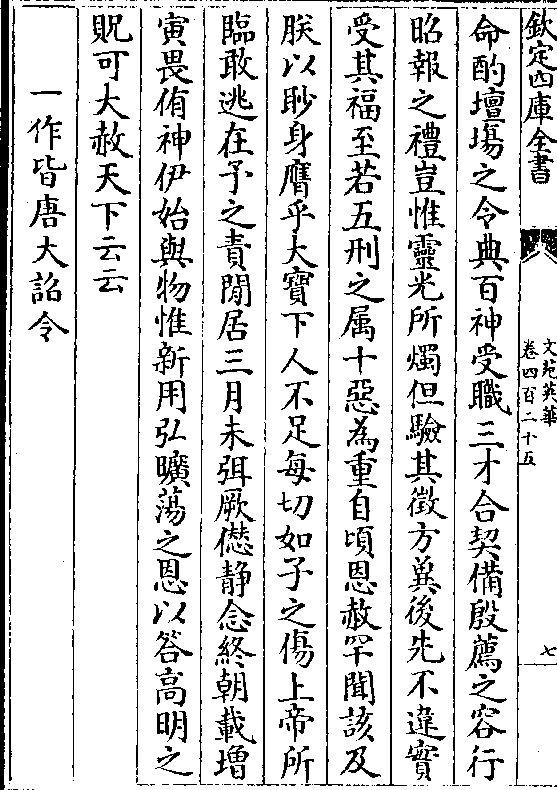 欽定四庫全書
文苑英華
卷四百二十五
七
命酌壇塲之令典百神受職三才合契備殷薦之容行
昭報之禮豈惟靈光所燭但驗其徵方兾後先不違實
受其福至若五刑之属十惡為重自頃恩赦罕聞該及
朕以眇身膺乎大寶下人不足每切如子之傷上帝所
臨敢逃在予之責閒居三月未弭厥僽静念終朝載增
寅畏侑神伊始與物惟新用弘曠蕩之恩以答高明之
貺可大赦天下云云
一作皆唐大詔令